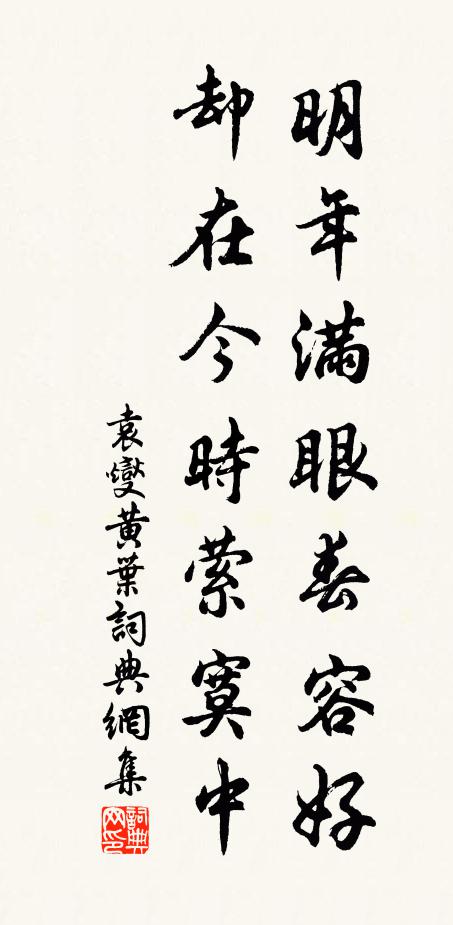 明年滿眼春容好
却在今時萦寞中
袁燮黄葉詞典網集
詞典
网印